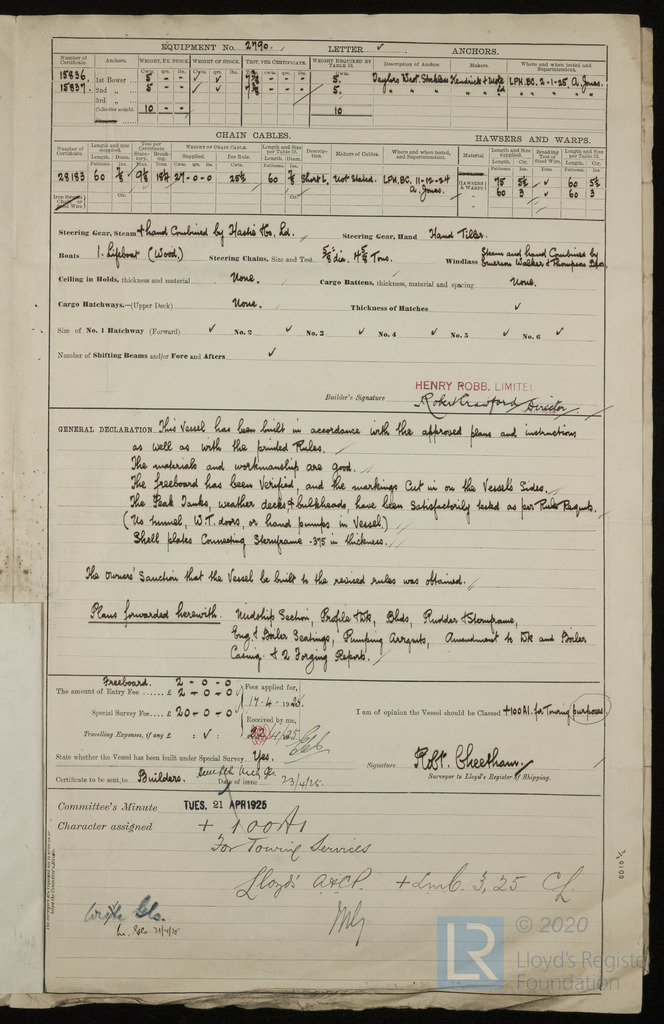 EQUIPMENT No. 2790. LETTER ✓ ANCHORS.
Number of Certificate. Anchors. WEIGHT, EX. STOCK WEIGHT OF STOCK. TEST, PER CERTIFICATE. WEIGHT REQUIRED BY TABLE 31. Description of Anchor. Makers. Where and when tested and Superintendent.
Cwts. qrs. lbs.
15836. 1st Bower 5 - - ✓ ✓ 5. Taylors West. Stockless Kendrick & Mole Ld LPH.BC. 2-1-25. A. Jones.
15837. 2nd „ 5 - - ✓ ✓ 5. „ „ „ „ „ „ „
3rd „
Collective weight. 10 - - 10
CHAIN CABLES. HAWSERS AND WARPS.
Number of Certificate. Length and size supplied. Test per Certificate WEIGHT OF CHAIN CABLE. Length and Size per Table 31. Description. Makers of Cables. Where and when tested, and Superintendent. Material. Length and Size supplied. Breaking Test of Steel Wire. Length and Size per Table 31.
Length. Diam. Statutory. Breaking. Supplied. Per Rule. Length. Diam. Length. Cir. Length. Cir.
28183 60 7/8 18 27-0-0 25½ 60 Short L. Not Stated. LPH.BC. 11-12-24 A. Jones. HAWSERS & WARPS 75 5½ ✓ 60 5½
60 3 ✓ 60 3
Steering Gear, Steam & hand Combined by Hastie & Co. Ld. Steering Gear, Hand Hand Tiller.
Boats 1. Lifeboat (Wood.) Steering Chains, Size and Test 5/8" dia. 4 5/8 Tons. Windlass Steam and hand Combined by Emerson Walker & Thompson Bros.
Ceiling in Holds, thickness and material None. Cargo Battens, thickness, material and spacing None.
Cargo Hatchways.—(Upper Deck) None. Thickness of Hatches ✓
Size of No. 1 Hatchway (Forward) ✓ No. 2 ✓ No. 3 ✓ No. 4 ✓ No. 5 ✓ No. 6 ✓
Number of Shifting Beams and/or Fore and Afters ✓
HENRY ROBB, LIMITED
Builder's Signature Robert Crawford Director
GENERAL DECLARATION This Vessel has been built in accordance with the approved plans and instructions
as well as with the printed Rules.
The materials and workmanship are good.
The freeboard has been Verified, and the markings Cut in on the Vessel's Sides.
The Peak Tanks, weather decks & bulkheads, have been Satisfactorily tested as per Rule Reqmts.
(No tunnel, W.T. doors, or hand pumps in Vessel.)
Shell plates Connecting Sternframe .375 in thickness.
The Owners' Sanction that the Vessel be built to the revised rules was obtained.
Plans forwarded herewith. Midship Section, Profile & Dk, Blhds, Rudder & Sternframe,
Eng. & Boiler Seatings, Pumping Arrgmts, Amendment to Dk and Boiler
Casing. & 2 Forging Reports.
Freeboard. 2 - 0 - 0
The amount of Entry Fee ..... £ 2 - 0 - 0 Fees applied for,
17-4-1925.
Special Survey Fee.... £ 20 - 0 - 0 Received by me, I am of opinion the Vessel should be Classed +100A1. for Towing purposes
Travelling Expenses, if any £ : ✓ : 22/4/25
State whether the Vessel has been built under Special Survey Yes. Signature Robt. Cheetham.
Surveyor to Lloyd's Register of Shipping.
Certificate to be sent to Builders. Date of issue 23/4/25.
Committee's Minute TUES. 21 APR 1925
Character assigned + 100A1
For Towing Services
Lloyd's A&CP. + LMC. 3,25 CL
Write Glo.
Lr. Glo. 21/4/25
© 2020
Lloyd's Register
Foundation
LR